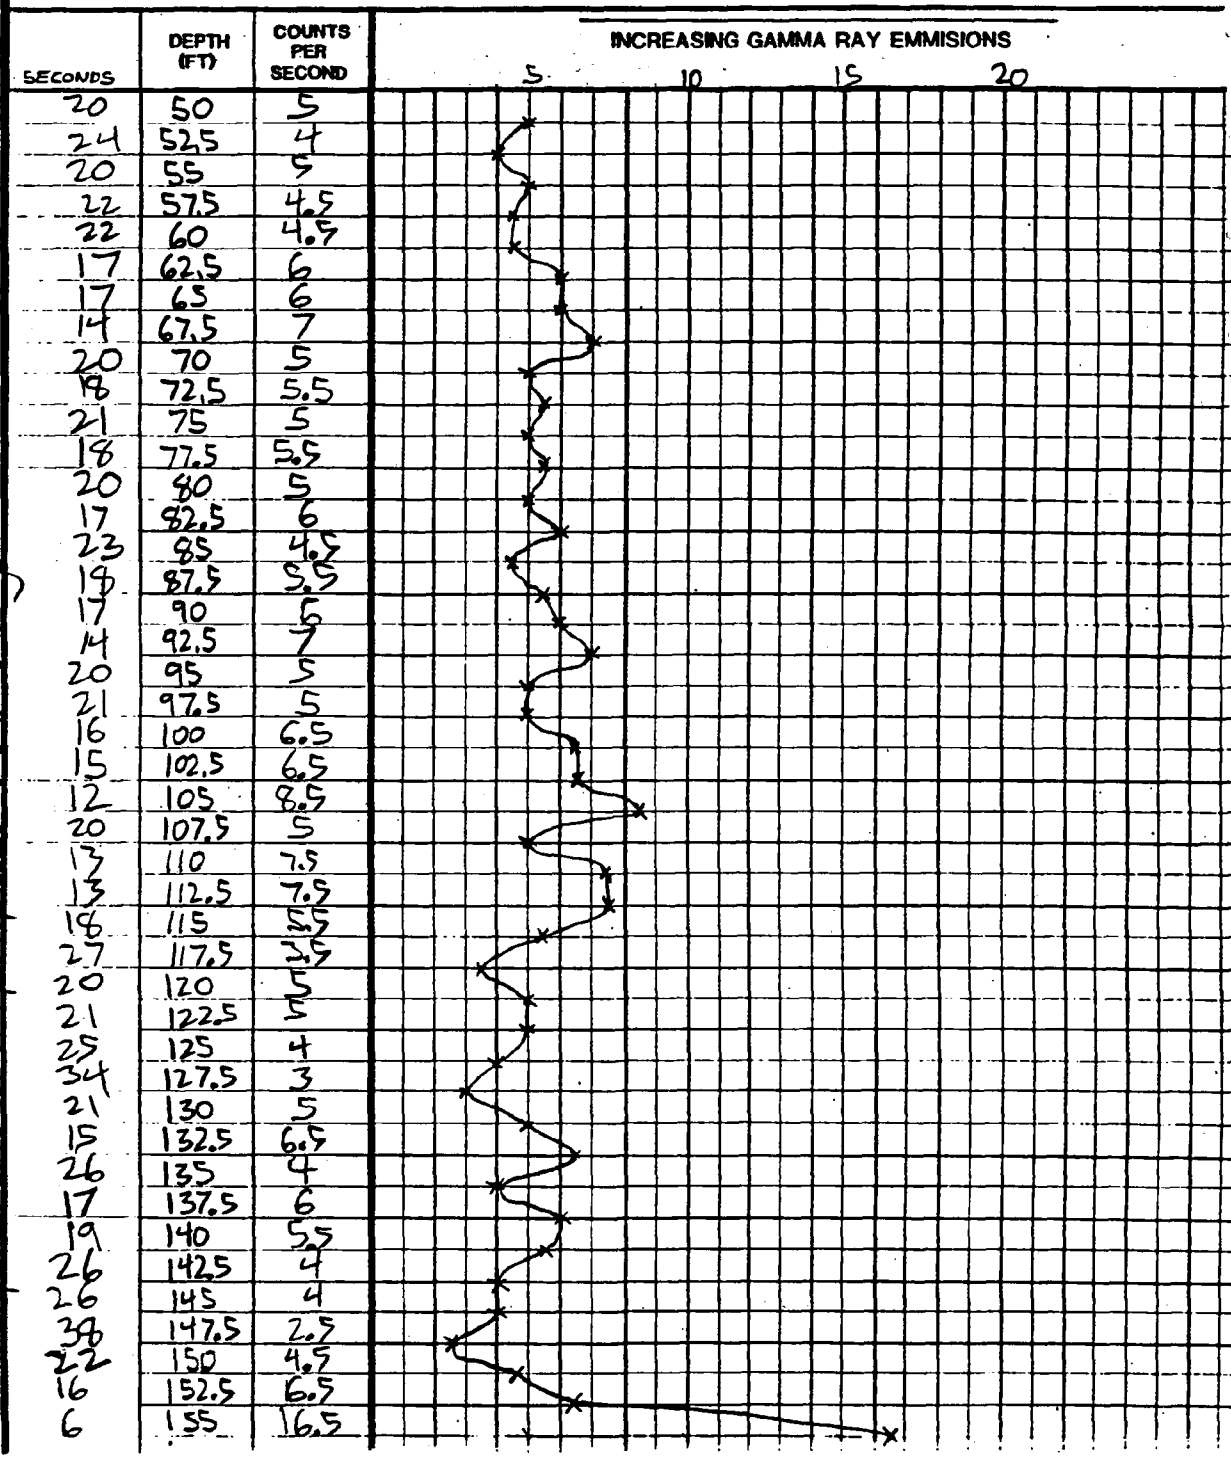 INCREASING GAMMA RAY EMMISIONS
SECONDS DEPTH (FT) COUNTS PER SECOND 5 10 15 20
20 50 5
24 52.5 4
20 55 5
22 57.5 4.5
22 60 4.5
17 62.5 6
17 65 6
14 67.5 7
20 70 5
18 72.5 5.5
21 75 5
18 77.5 5.5
20 80 5
17 82.5 6
23 85 4.5
18 87.5 5.5
17 90 5
14 92.5 7
20 95 5
21 97.5 5
16 100 6.5
15 102.5 6.5
12 105 8.5
20 107.5 5
13 110 7.5
13 112.5 7.5
18 115 5.5
27 117.5 3.5
20 120 5
21 122.5 5
25 125 4
34 127.5 3
21 130 5
15 132.5 6.5
26 135 4
17 137.5 6
19 140 5.5
26 142.5 4
26 145 4
38 147.5 2.5
22 150 4.5
16 152.5 6.5
6 155 16.5